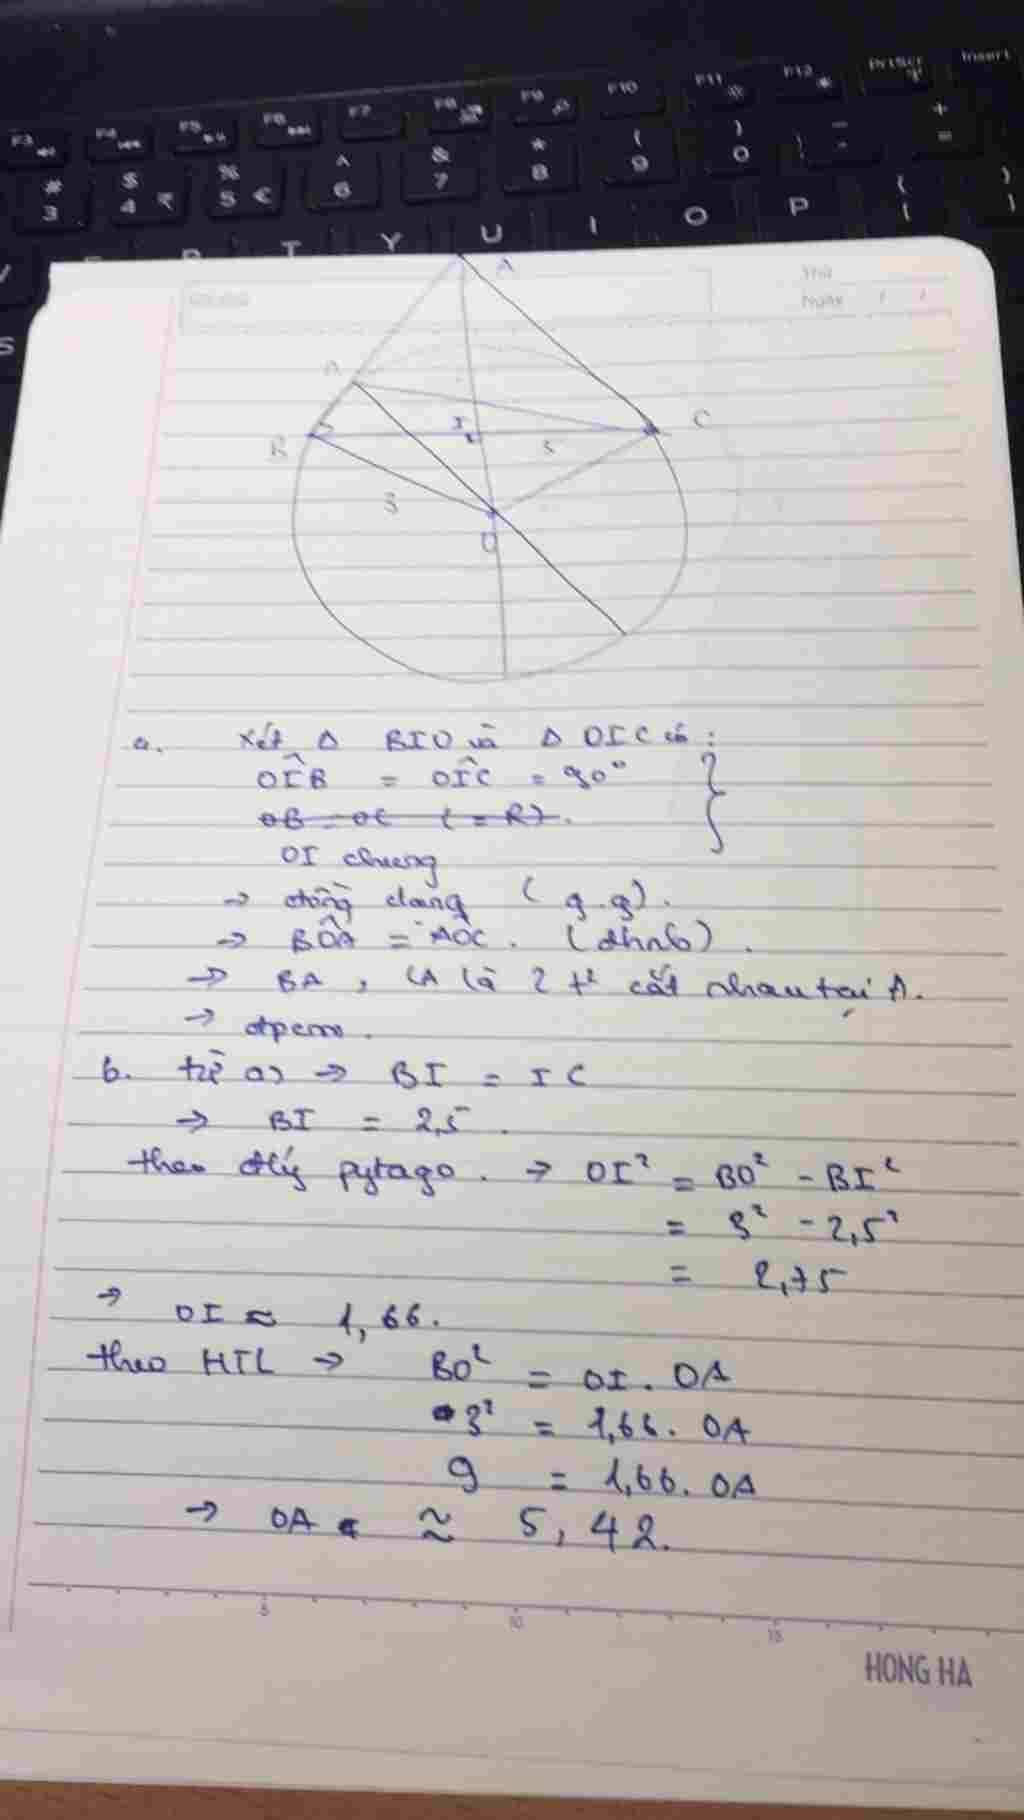 F3 F4 F5 F6 F7 F8 F9 F10 F11 F12 PrtScr Insert
# $ % ^ & * ( ) - +
3 4 ₹ 5 € 6 7 8 9 0 =
T Y U I O P { [ } ]
S
A
Thứ
Ngày / /
B I C
3
O
a. Xét Δ BIO và Δ OIC có:
OÎB = OÎC = 90°
OB = OC (= R).
OI chung
→ đồng dạng (g.g).
→ BÔA = AÔC. (đhnb).
→ BA, CA là 2 t² cắt nhau tại A.
→ đpcm.
b. từ a) → BI = IC
→ BI = 2,5.
theo đlý pytago. → OI² = BO² - BI²
= 3² - 2,5²
= 2,75
→ OI ≈ 1,66.
theo HTL → BO² = OI. OA
3² = 1,66. OA
9 = 1,66. OA
→ OA ≈ 5,42.
5 10 15
HONG HA